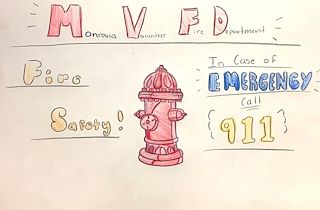 Monrovia Volunteer Fire Department
Fire
Safety!
In Case of
EMERGENCY
Call
911